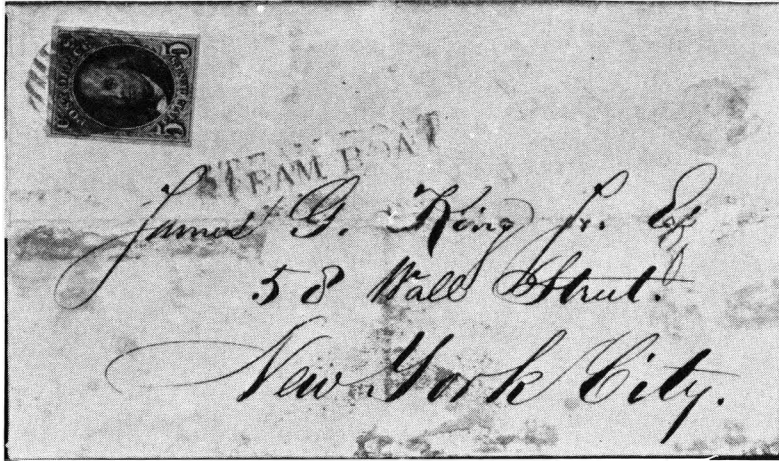 STEAM BOAT
James G. King Jr. Esq
58 Wall Street.
New York City.